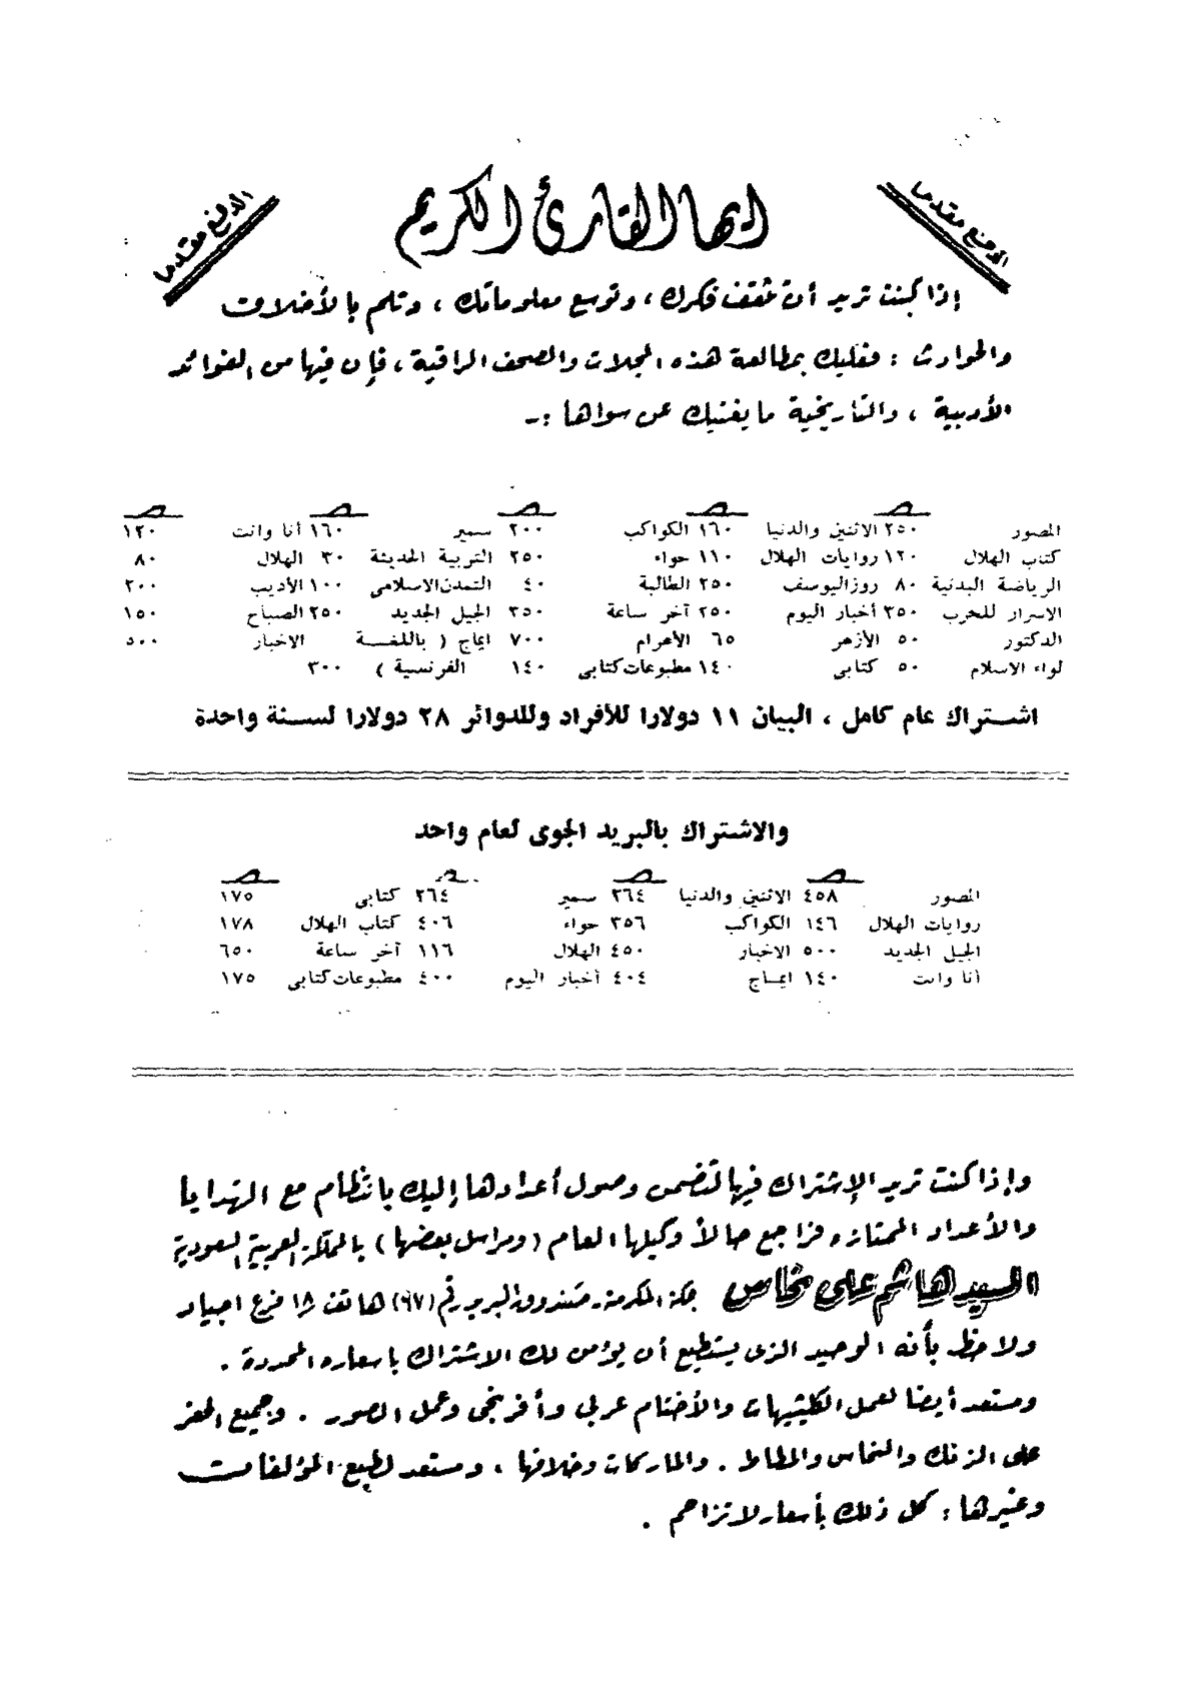 الدفع مقدما
ايها القارئ الكريم
الدفع مقدما
إذا كنت تريد أن تثقف فكرك ، وتوسع معلوماتك ، وتلم بالأخلاق
والحوادث : فعليك بمطالعة هذه المجلات والصحف الراقية ، فإن فيها من الفوائد
الأدبية ، والتاريخية ما يغنيك عن سواها :ـ
المصور ٢٥٠ الاثنين والدنيا ١٦٠ الكواكب ٢٠٠ سمير ١٦٠ أنا وانت ١٢٠
كتاب الهلال ١٢٠ روايات الهلال ١١٠ حواء ٢٥٠ التربية الحديثة ٣٠ الهلال ٨٠
الرياضة البدنية ٨٠ روز اليوسف ٢٥٠ الطالبة ٤٠ التمدن الاسلامى ١٠٠ الأديب ٢٠٠
الاسرار للحرب ٢٥٠ أخبار اليوم ٢٥٠ آخر ساعة ٢٥٠ الجيل الجديد ٢٥٠ الصباح ١٥٠
الدكتور ٥٠ الأزهر ٦٥ الأهرام ٧٠٠ ايماج ( باللغــة الاخبار ٥٠٠
لواء الاسلام ٥٠ كتابى ١٤٠ مطبوعات كتابى ١٤٠ الفرنسية ) ٣٠٠
اشــتراك عام كامل ، البيان ١١ دولارا للأفراد وللدوائر ٢٨ دولارا لسـنة واحدة
والاشتراك بالبريد الجوى لعام واحد
المصور ٤٥٨ الاثنين والدنيا ٣٦٤ سمير ٢٦٤ كتابى ١٧٥
روايات الهلال ١٤٦ الكواكب ٣٥٦ حواء ٤٠٦ كتاب الهلال ١٧٨
الجيل الجديد ٥٠٠ الاخبار ٤٥٠ الهلال ١١٦ آخر ساعة ٦٥٠
أنا وانت ١٤٠ ايمـاج ٤٠٤ أخبار اليوم ٤٠٠ مطبوعات كتابى ١٧٥
وإذا كنت تريد الإشتراك فيها لتضمن وصول أعدادها إليك بانتظام مع الهدايا
والأعداد الممتازه فراجع حالاً وكيلها العام ( ومراسل بعضها ) بالمملكة العربية السعودية
السيد هاشم على نحاس بمكة المكرمة ـ صندوق البريد رقم (٩٧) هاتف ١٨ فرع اجياد
ولاحظ بأنه الوحيد الذى يستطيع أن يؤمن لك الاشتراك باسعاره المحددة .
ومستعد أيضا لعمل الكليشيهات والأختام عربي وأفرنجى وعمل الصور . وجميع الحفر
على الزنك والنحاس والمطاط . والماركات وخلافها ، ومستعد لطبع المؤلفات
وغيرها : كل ذلك بأسعار لا تزاحم .